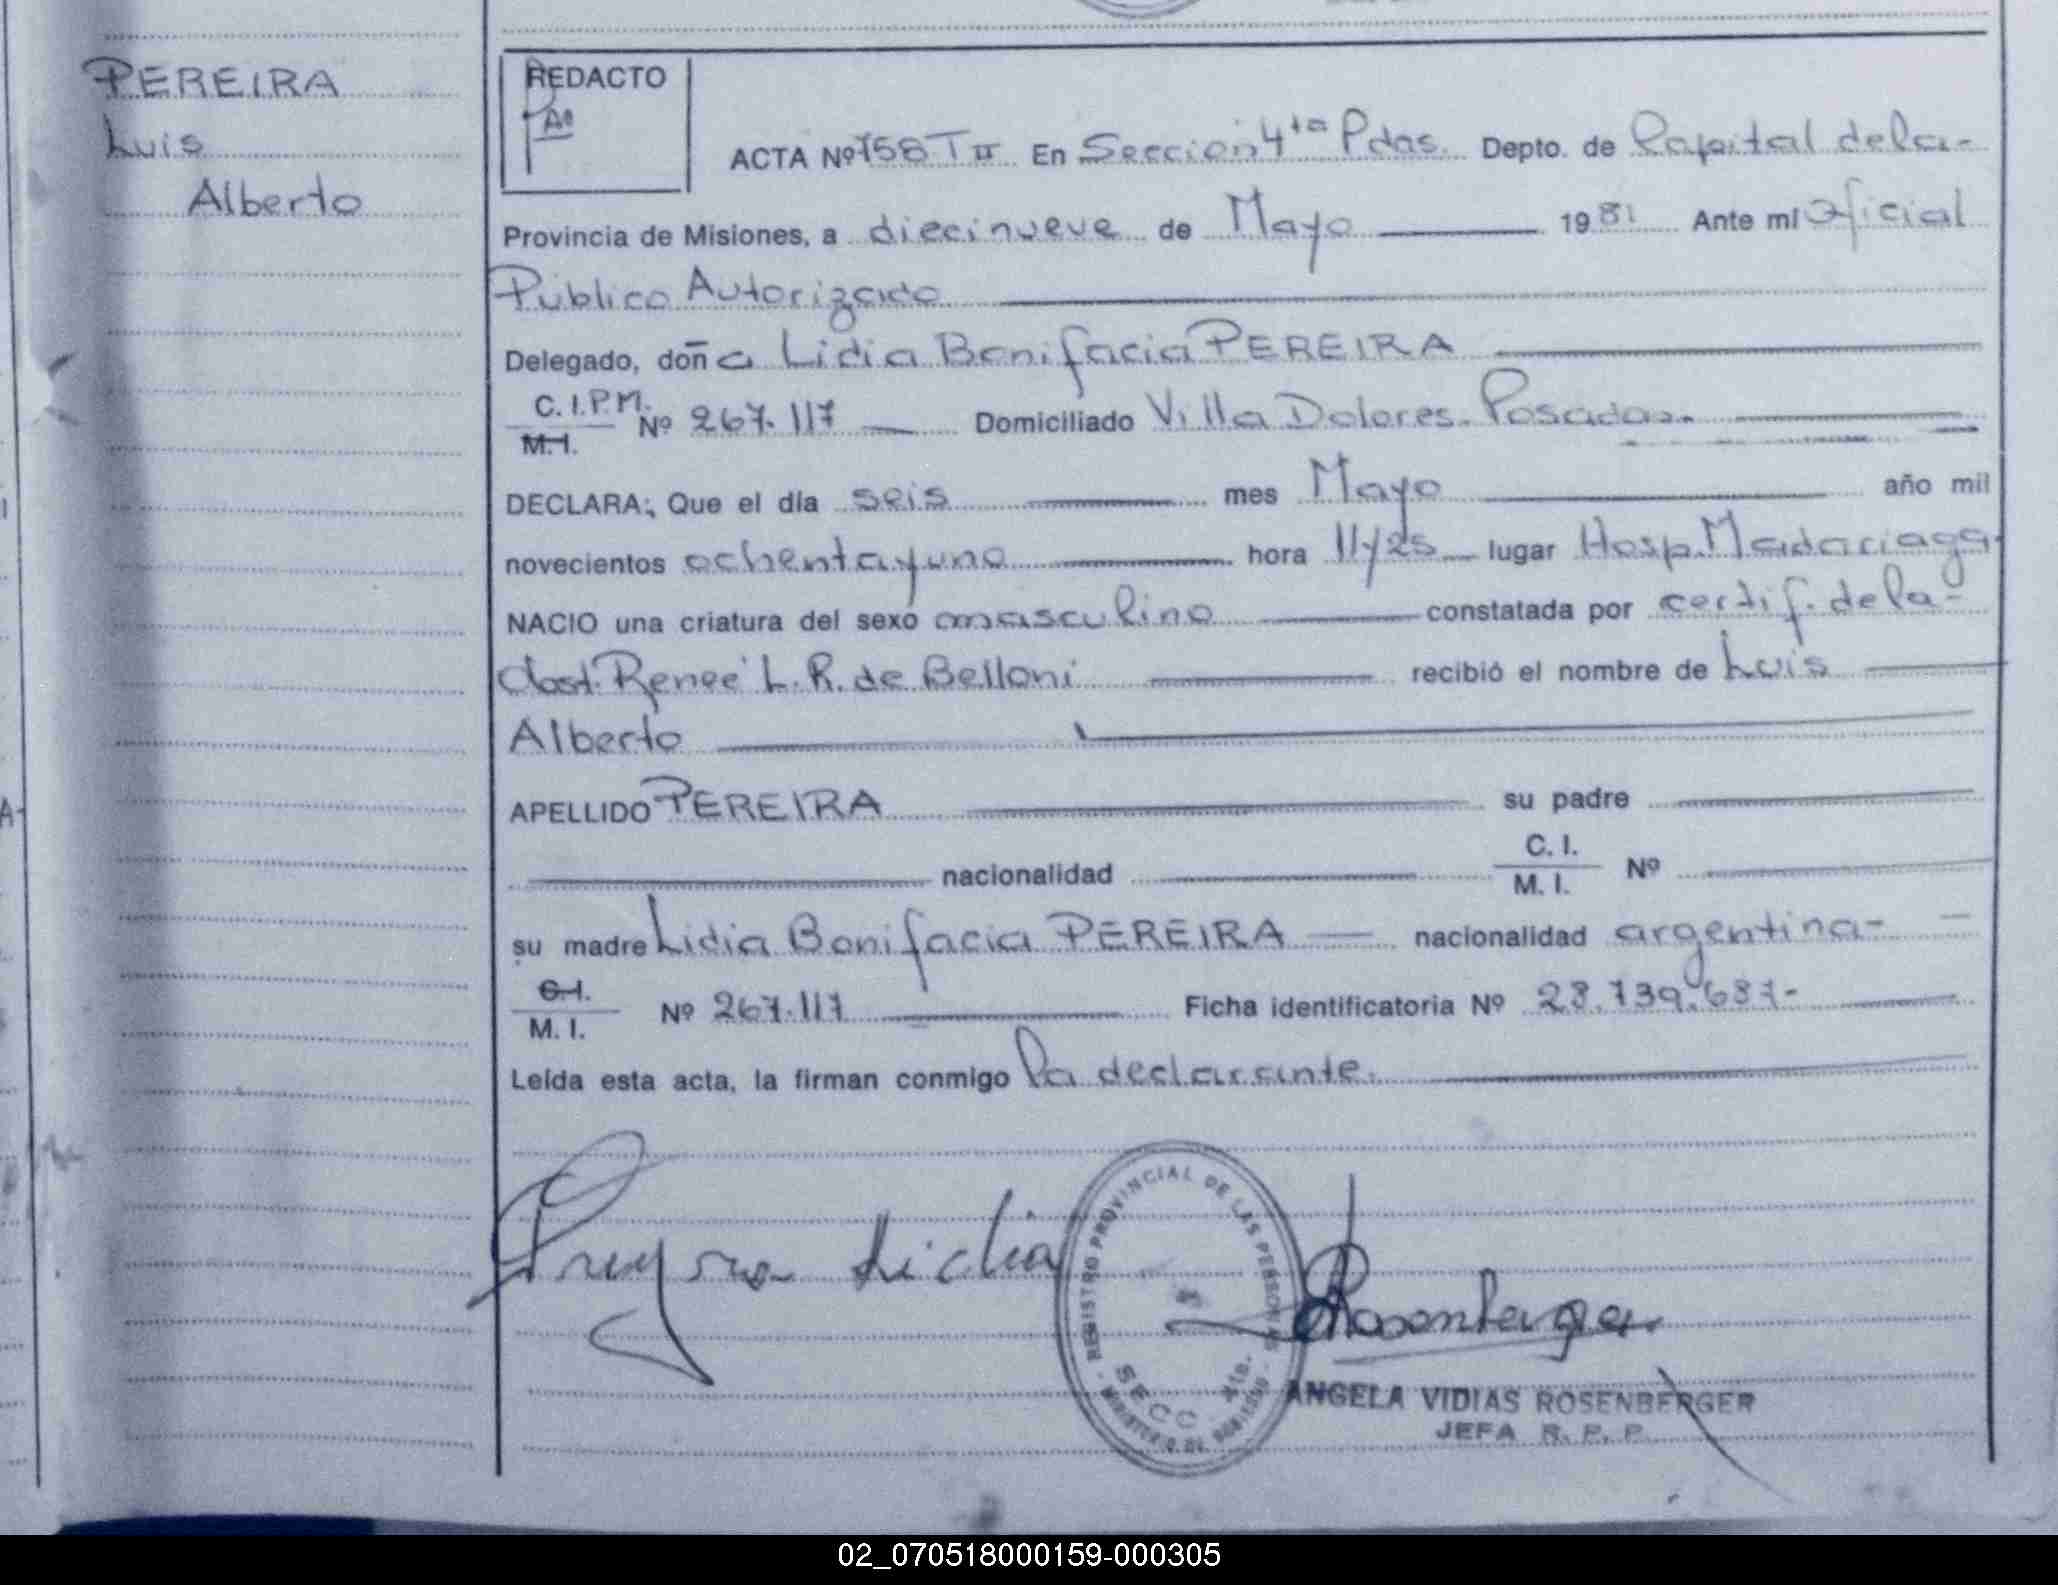 PEREIRA
Luis
Alberto
REDACTO
Aº
ACTA Nº 758 T II En Sección 4ta Pdas. Depto. de Capital de la-
Provincia de Misiones, a diecinueve de Mayo 1981 Ante mí Oficial
Público Autorizado
Delegado, doña Lidia Bonifacia PEREIRA
C. I. P. M. Nº 267.117 Domiciliado Villa Dolores- Posadas.
M. I.
DECLARA: Que el día seis mes Mayo año mil
novecientos ochenta y uno hora 11 y 25 lugar Hosp. Madariaga
NACIO una criatura del sexo masculino constatada por certif. de la-
Obst. Reneé L. R. de Belloni recibió el nombre de Luis
Alberto
APELLIDO PEREIRA su padre
nacionalidad C. I. Nº
M. I.
su madre Lidia Bonifacia PEREIRA nacionalidad argentina-
C. I.
M. I. Nº 267.117 Ficha identificatoria Nº 28.739.687-
Leída esta acta, la firman conmigo la declarante.
Lidia
REGISTRO PROVINCIAL DE LAS PERSONAS
SECC 4ta.
MINISTERIO DE GOBIERNO
Rosenberger
ANGELA VIDIAS ROSENBERGER
JEFA R. P. P.
02_070518000159-000305